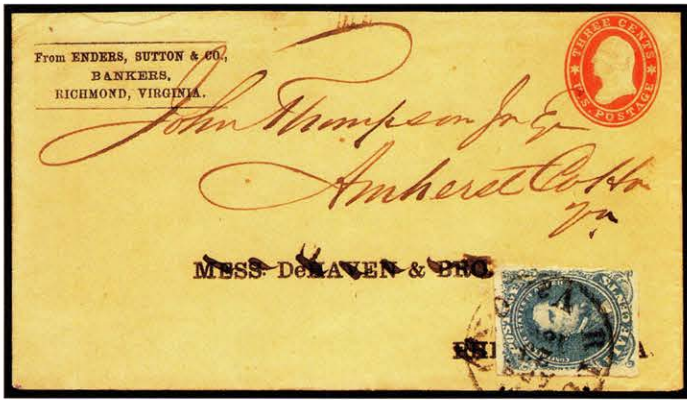 From ENDERS, SUTTON & CO.,
BANKERS,
RICHMOND, VIRGINIA.
THREE CENTS
U.S. POSTAGE
John Thompson Jr Esq
Amherst Co Ho
Va
MESS. DeHAVEN & BRO.